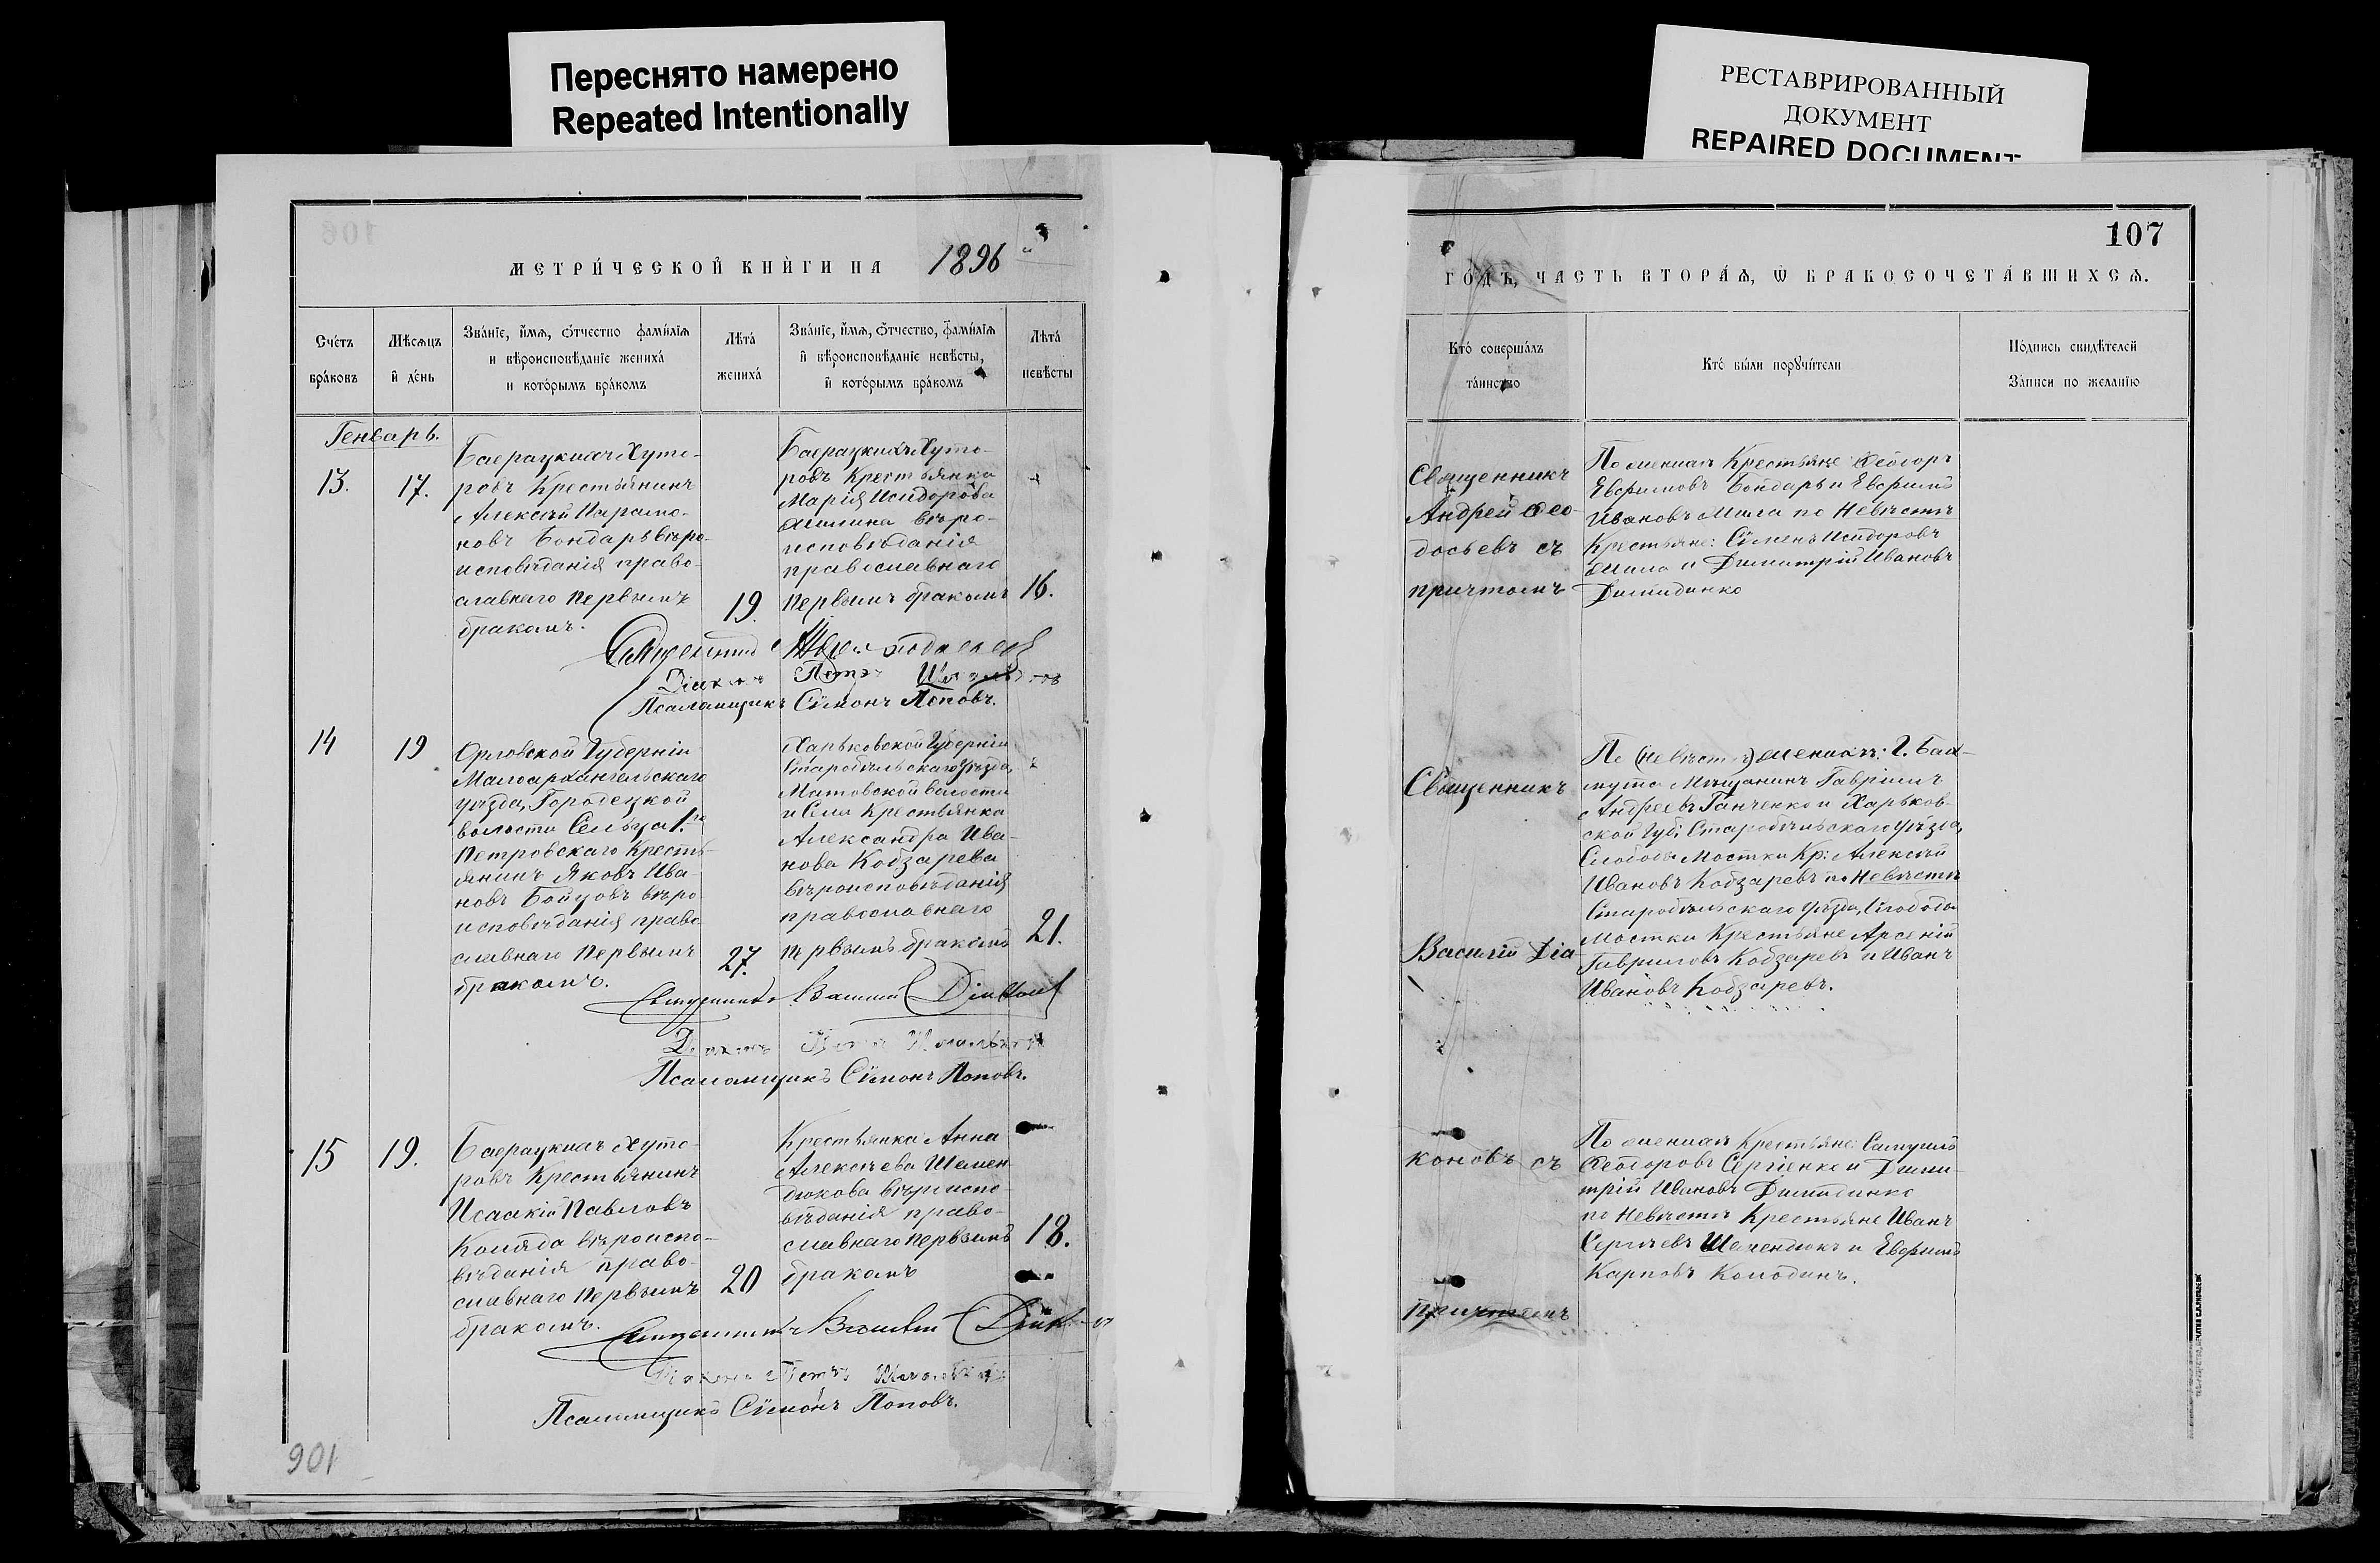 Переснято намерено
Repeated Intentionally
РЕСТАВРИРОВАННЫЙ
ДОКУМЕНТ
REPAIRED DOCUMENT
МЕТРИ́ЧЕСКОЙ КНИ́ГИ НА 1896
Сче́тъ
бра́ковъ
Мѣ́сѧцъ
и҆ де́нь
Зва́нїе, и҆́мѧ, ѻ҆́тчество фами́лїѧ
и вѣроисповѣ́данїе жениха́
и кото́рымъ бра́комъ
Лѣта́
жениха́
Зва́нїе, и҆́мѧ, ѻ҆́тчество, фами́лїѧ
и҆ вѣроисповѣ́данїе невѣ́сты,
и҆ кото́рымъ бра́комъ
Лѣта́
невѣ́сты
Генварь.
13.
17.
Баерацкихъ Хуто-
ровъ Крестьянинъ
Алексѣй Парамо-
новъ Бондарь вѣро-
исповѣданія право-
славнаго первымъ
бракомъ.
19.
Баерацкихъ Хуто-
ровъ Крестьянка
Марія Исидорова
вѣро-
исповѣданія
православнаго
первымъ бракомъ
16.
Священникъ
Діаконъ Петръ
Псаломщикъ Сѵмонъ Поповъ.
14
19
Орловской Губерніи
Малоархангельскаго
уѣзда, Городецкой
волости Сельца 1.го
Петровскаго Кресть-
янинъ Яковъ Ива-
новъ Бойцовъ вѣро-
исповѣданія право
славнаго первымъ
бракомъ.
27.
Харьковской Губерніи
Старобѣльскаго Уѣзда,
волости
и Села Крестьянка
Александра Ива-
нова Кобзарева
вѣроисповѣданія
православнаго
первымъ бракомъ
21.
Священникъ Василій Діаконовъ
Діаконъ
Псаломщикъ Сѵмонъ Поповъ.
15
19.
Баерацкихъ Хуто-
ровъ Крестьянинъ
Исаакій Павловъ
Коляда вѣроиспо-
вѣданія право-
славнаго первымъ
бракомъ.
20
Крестьянка Анна
Алексѣева Шемен
дюкова вѣроиспо-
вѣданія право-
славнаго первымъ
бракомъ
18.
Священникъ Василій
Діаконъ Петръ
Псаломщикъ Сѵмонъ Поповъ.
106
107
ГО́ДЪ, ЧАСТЬ ВТОРА́Ѧ, Ѡ҆ БРАКОСОЧЕТА́ВШИХСѦ.
Кто́ соверша́лъ
та́инство
Кто́ бы́ли порꙋчи́тели
По́дпись свидѣ́телей
За́писи по жела́нїю
Священникъ
Андрей Ѳео-
досьевъ съ
причтомъ
По женихѣ Крестьяне Ѳеодоръ
Евфимовъ Бондарь и Евфимъ
Ивановъ по Невѣстѣ
Крестьяне: Сѵменъ Исидоровъ
и Димитрій Ивановъ
Димидинко
Священникъ
Василій Діа-
коновъ съ
причтомъ
По (невѣстѣ) женихѣ: Г. Бах-
мута Мѣщанинъ Гавріилъ
Андреевъ Ганченко и Харьков-
ской Губ: Старобѣльскаго Уѣзда,
Слободы Мостки Кр: Алексѣй
Ивановъ Кобзаревъ по Невѣстѣ
Старобѣльскаго Уѣзда, Слободы
Мостки Крестьяне Арсеній
Гавриловъ Кобзаревъ и Иванъ
Ивановъ Кобзаревъ.
По женихѣ Крестьяне: Самуилъ
Ѳеодоровъ Сергіенко и Дими-
трій Ивановъ Димидинко
по Невѣстѣ Крестьяне Иванъ
Сергѣевъ Шемендюкъ и Евфимъ
Карповъ Колодинъ.